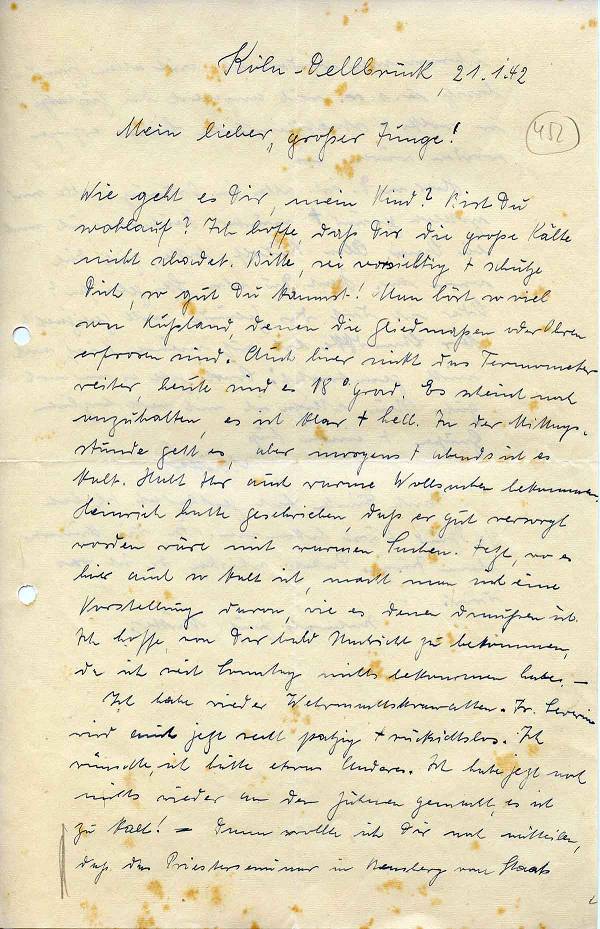 Köln-Dellbrück, 21.1.42
452
Mein lieber, großer Junge!
Wie geht es Dir, mein Kind? Bist Du
wohlauf? Ich hoffe, daß Dir die große Kälte
nicht schadet. Bitte, sei vorsichtig + schütze
Dich, so gut Du kannst! Man hört so viel
von Rußland, denen die Gliedmaßen oder Ohren
erfroren sind. Auch hier sinkt das Termometer
weiter, heute sind es 18° Grad. Es scheint noch
anzuhalten, es ist klar + hell. In der Mittags-
stunde geht es, aber morgens + abends ist es
kalt. Habt Ihr auch warme Wollsachen bekommen.
Heinrich hatte geschrieben, daß er gut versorgt
worden wäre mit warmen Sachen. Jetzt, wo es
hier auch so kalt ist, macht man sich eine
Vorstellung davon, wie es denen draußen ist.
Ich hoffe, von Dir bald Nachricht zu bekommen,
da ich seit Sonntag nichts bekommen habe. –
Ich habe wieder Wehrmachtskrawatten. Fr. Severin
wird auch jetzt recht patzig + rücksichtslos. Ich
wünschte, ich hätte etwas Anderes. Ich habe jetzt noch
nichts wieder an den Zähnen gemacht, es ist
zu kalt! – Dann wollte ich Dir noch mitteilen,
daß das Priesterseminar in Bensberg vom Staat